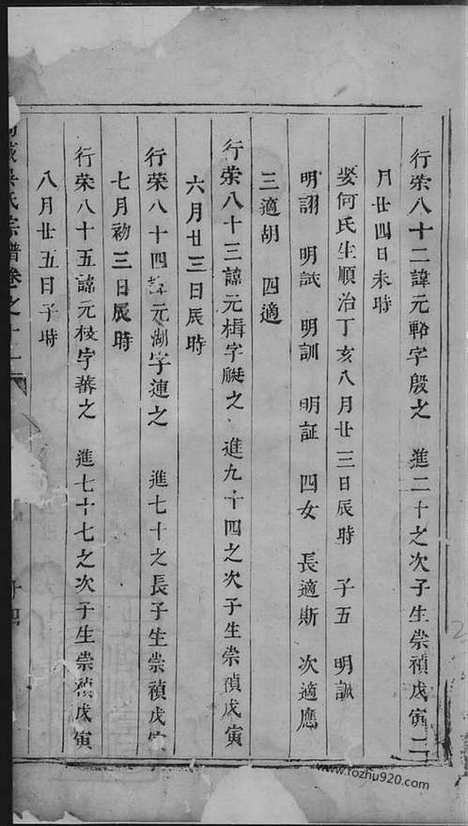 行荣八十二諱元輅字殷之　進二十之次子生崇禎戊寅二
月廿四日未時
娶何氏生順治丁亥八月廿三日辰時　子五　明誠
明詡　明試　明訓　明証　四女　長適斯　次適應
三適胡　四適
行荣八十三諱元楫字艇之　進九十四之次子生崇禎戊寅
六月廿三日辰時
行荣八十四諱元湖字連之　進七十之長子生崇禎戊寅
七月初三日辰時
行荣八十五諱元棱字蕃之　進七十七之次子生崇禎戊寅
八月廿五日子時
氏宗譜卷之十一
十四
www.fozhu920.com